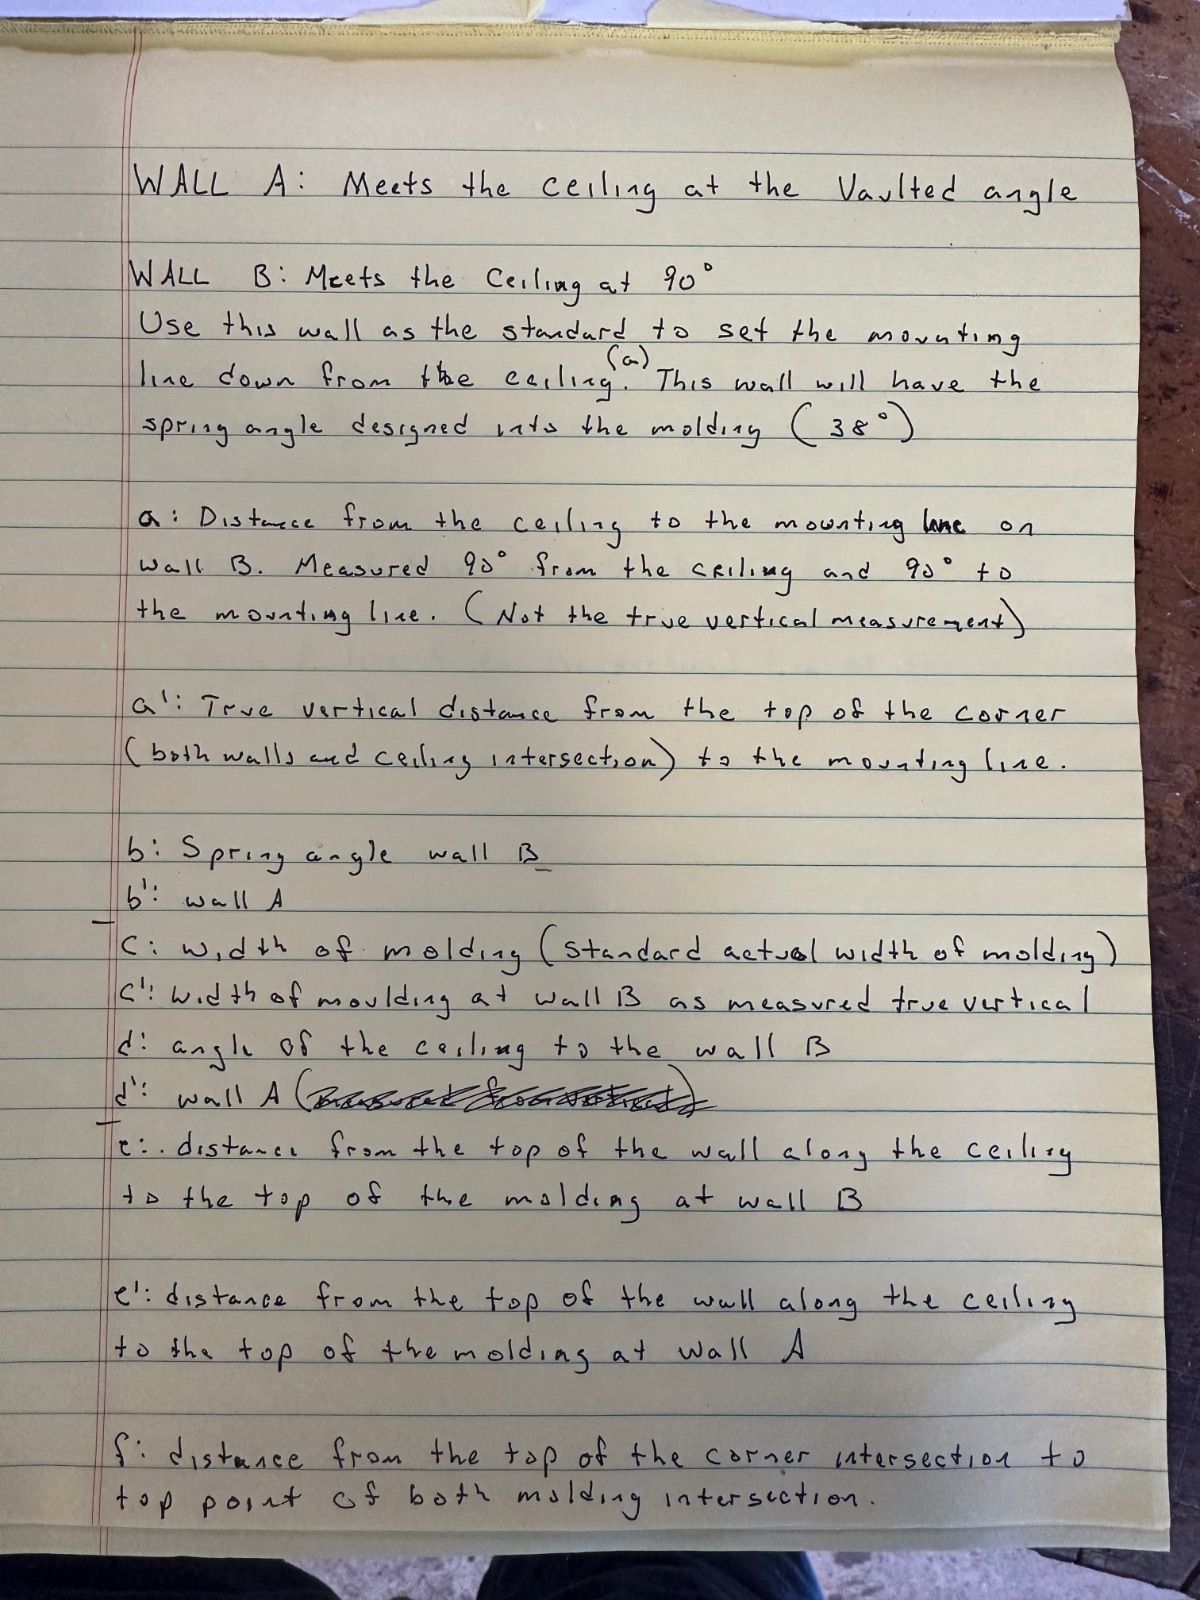 WALL A: Meets the ceiling at the Vaulted angle
WALL B: Meets the Ceiling at 90°
Use this wall as the standard to set the mounting
(a)
line down from the ceiling. This wall will have the
spring angle designed into the molding (38°)
a: Distance from the ceiling to the mounting line on
wall B. Measured 90° from the ceiling and 90° to
the mounting line. (Not the true vertical measurement)
a': True vertical distance from the top of the corner
(both walls and ceiling intersection) to the mounting line.
b: Spring angle wall B
b': wall A
C: width of molding (standard actual width of molding)
C': Width of moulding at wall B as measured true vertical
d: angle of the ceiling to the wall B
d': wall A
e: distance from the top of the wall along the ceiling
to the top of the molding at wall B
e': distance from the top of the wall along the ceiling
to the top of the molding at wall A
f: distance from the top of the corner intersection to
top point of both molding intersection.